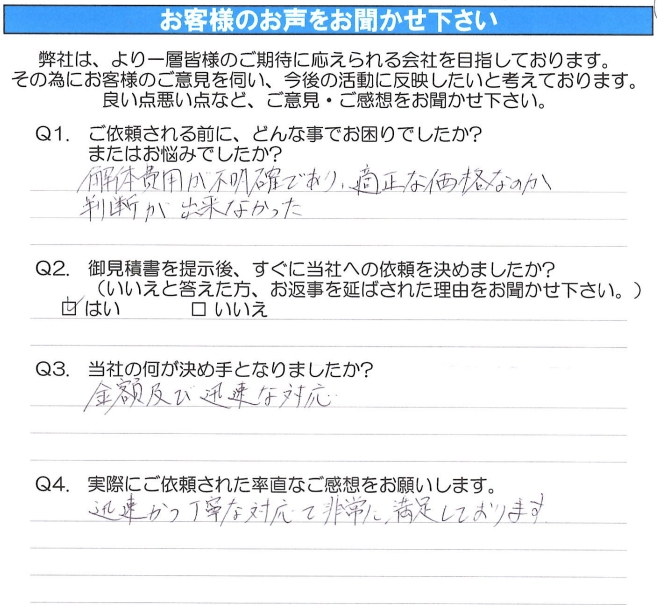 お客様のお声をお聞かせ下さい
弊社は、より一層皆様のご期待に応えられる会社を目指しております。
その為にお客様のご意見を伺い、今後の活動に反映したいと考えております。
良い点悪い点など、ご意見・ご感想をお聞かせ下さい。
Q1. ご依頼される前に、どんな事でお困りでしたか?
またはお悩みでしたか?
解体費用が不明確であり、適正な価格なのか
判断が出来なかった
Q2. 御見積書を提示後、すぐに当社への依頼を決めましたか?
(いいえと答えた方、お返事を延ばされた理由をお聞かせ下さい。)
☑はい □いいえ
Q3. 当社の何が決め手となりましたか?
金額及び迅速な対応
Q4. 実際にご依頼された率直なご感想をお願いします。
迅速かつ丁寧な対応で非常に満足しております